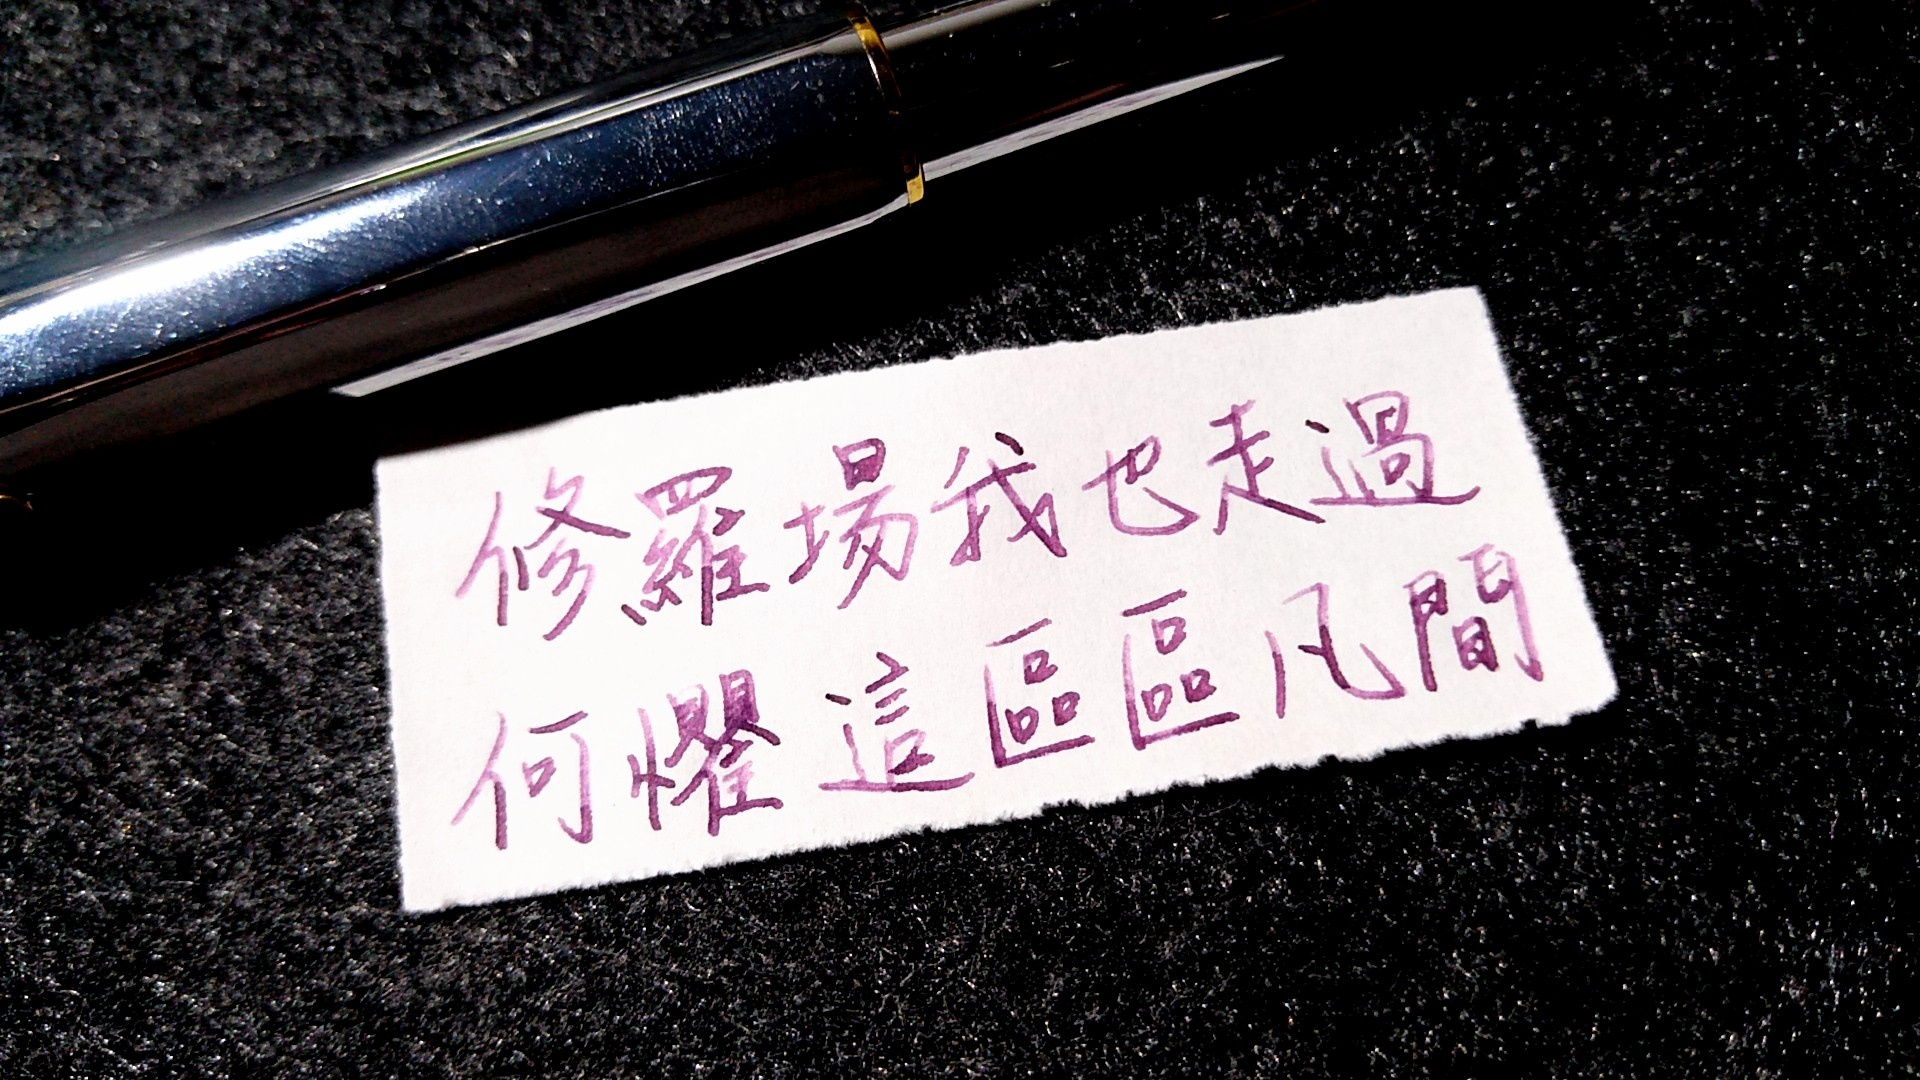 修羅場我也走過
何懼這區區凡間